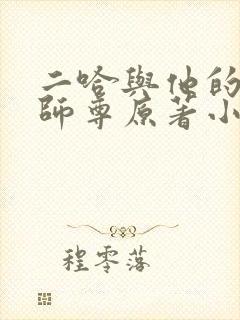 二哈與他的
師尊原著小
程零落